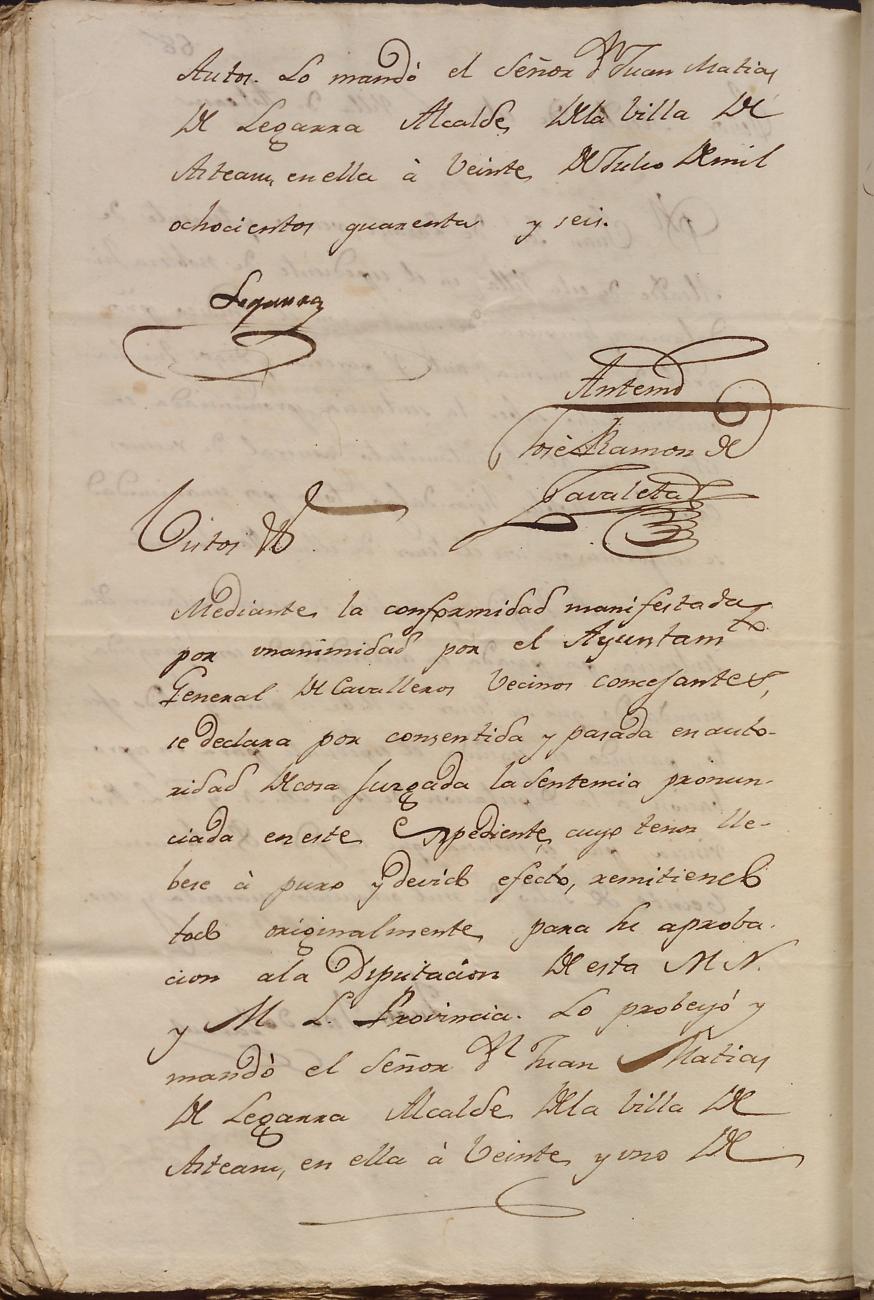 Autos. Lo mandó el Señor Dn. Juan Matias
de Legarra Alcalde de la Villa de
Asteasu, en ella à Veinte de Julio de mil
ochocientos quarenta y seis.
Legarra
Antemi
José Ramon de
Zavaleta
Vistos
Mediante la conformidad manifestada
por unanimidad por el Ayuntamto
General de Cavalleros Vecinos concejantes,
se declara por consentida y pasada en auto-
ridad de cosa Juzgada la Sentencia pronun-
ciada en este Expediente, cuyo tenor lle-
bese à puro y devido efecto, remitiendo
todo originalmente para su aproba-
cion ala Diputacion de esta M. N.
y M. L. Provincia. Lo probeyó y
mandò el Señor Dn Juan Matias
de Legarra Alcalde de la Villa de
Asteasu, en ella à Veinte y uno de